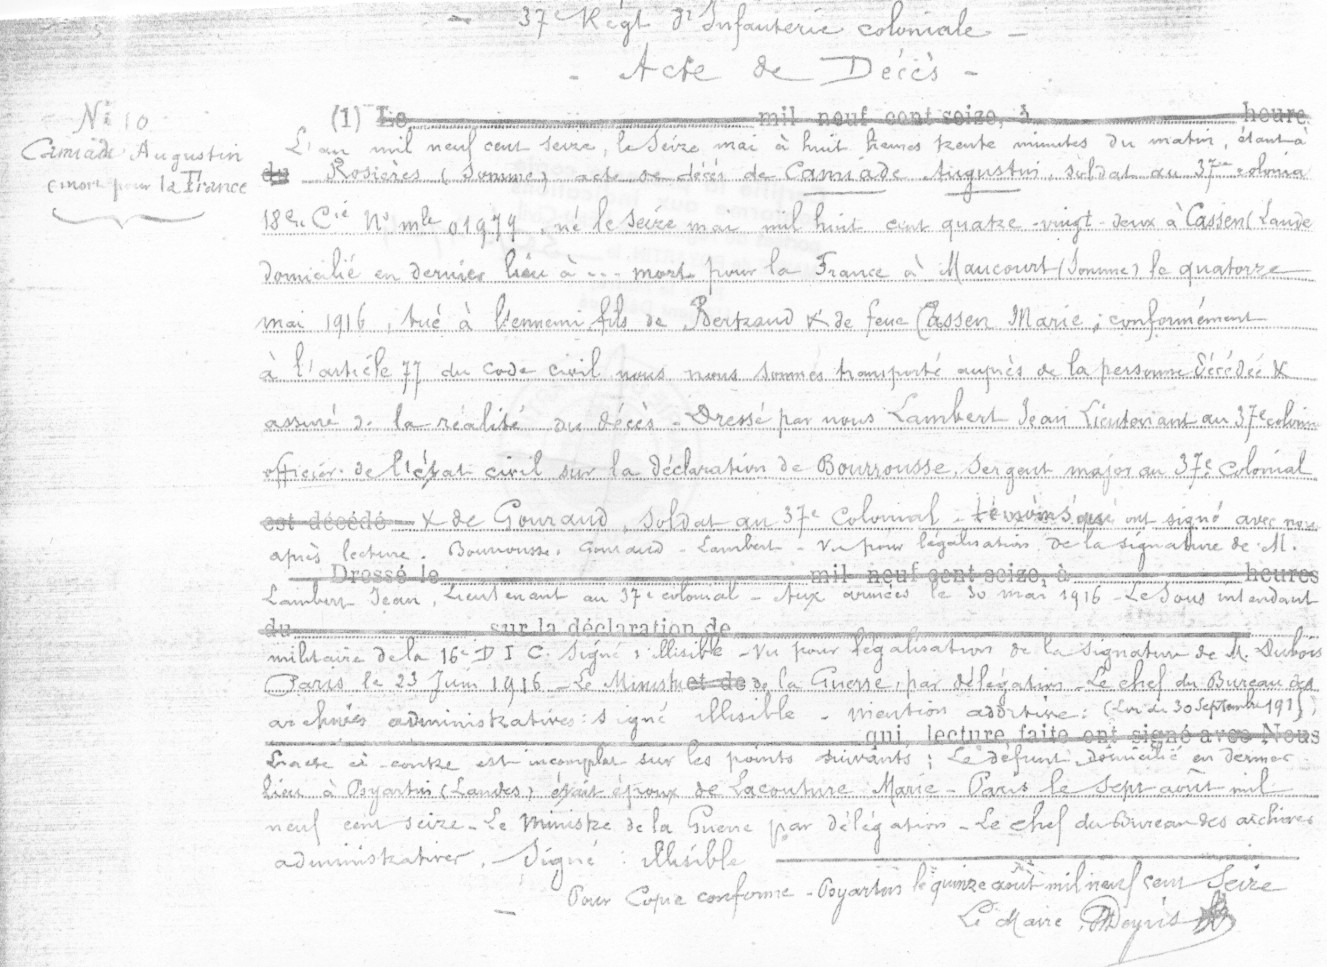 37e Régt d'Infanterie coloniale
- Acte de Décès -
No 10
Camiade Augustin
mort pour la France
(1) Le mil neuf cent seize, à heure
L'an mil neuf cent seize, le seize mai à huit heures trente minutes du matin, étant à
du Rosières (Somme) acte de décès de Camiade Augustin, soldat au 37e colonia
18e Cie No mle 01979, né le seize mai mil huit cent quatre-vingt-deux à Cassen (Lande
domicilié en dernier lieu à ... mort pour la France à Maucourt (Somme) le quatorze
mai 1916, tué à l'ennemi, fils de Bertrand & de feue Cassen Marie ; conformément
à l'article 77 du code civil nous nous sommes transporté auprès de la personne décédée &
assuré de la réalité du décès - Dressé par nous Lambert Jean Lieutenant au 37e colonia
officier de l'état civil sur la déclaration de Bourrousse, sergent major au 37e Colonial
est décédé & de Gouraud, soldat au 37e Colonial - témoins qui ont signé avec nous
après lecture. Bourrousse, Gouraud - Lambert - Vu pour légalisation de la signature de M.
Dressé le mil neuf cent seize, à heures
Lambert Jean, Lieutenant au 37e colonial - Aux armées le 30 mai 1916 - Le Sous intendant
du sur la déclaration de
militaire de la 16e D I C. Signé : illisible - Vu pour légalisation de la signature de M. Dubois
Paris le 23 Juin 1916 - Le Ministre et de de la Guerre, par délégation - Le chef du Bureau des
archives administratives : signé illisible - mention additive : (Loi du 30 Septembre 1915)
qui, lecture faite ont signé avec Nous
L'acte ci-contre est incomplet sur les points suivants ; Le défunt domicilié en dernier
lieu à Poyartin (Landes) était époux de Lacouture Marie - Paris le sept août mil
neuf cent seize - Le Ministre de la Guerre par délégation - Le chef du Bureau des archives
administratives, Signé : illisible
Pour Copie conforme - Poyartin le quinze août mil neuf cent seize
Le Maire